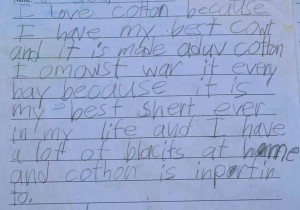 I love cotton because
I have my best cowt
and it is made aduv cotton
I omowst war it every
bay because it is
my best shert ever
in my life and I have
a lot of blacits at home
and cothon is inportin
to.